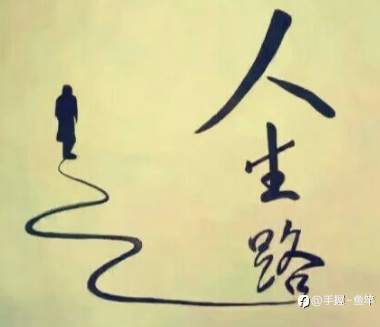 人生路
@手握~鱼竿